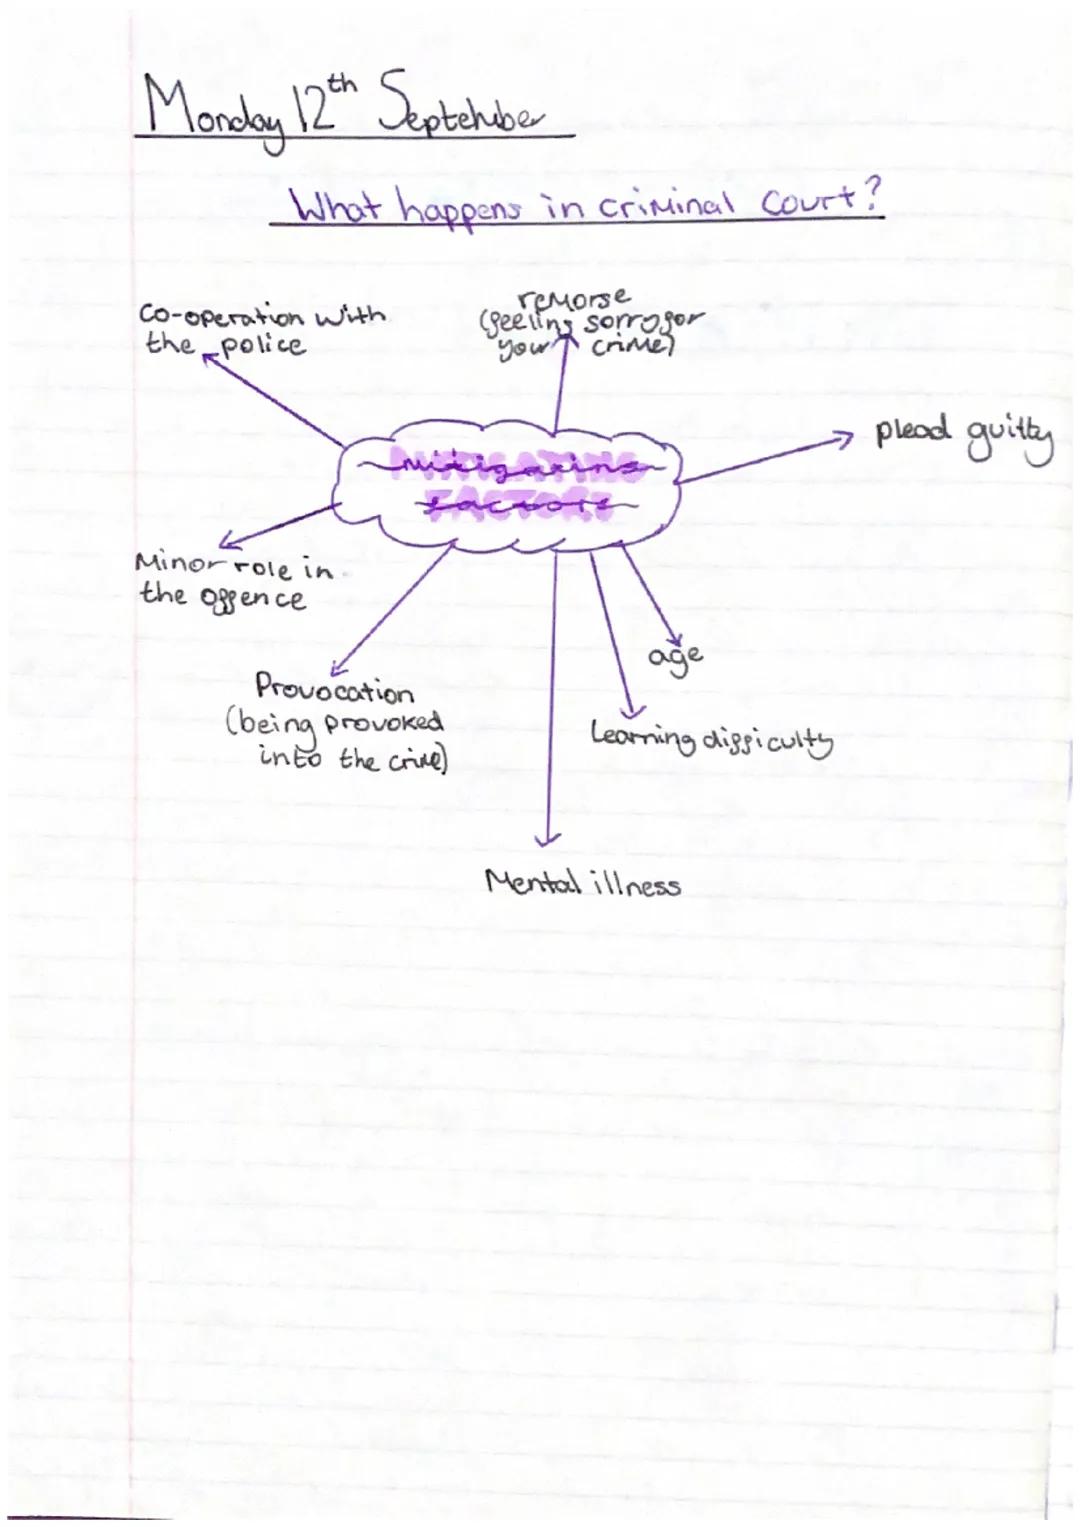 Monday 12th September
What happens in criminal court?
co-operation with
the police
remorse
(feeling sorry for
your crime)
plead guilty
mitigating
factors
Minor role in
the offence
age
Provocation
(being provoked
into the crime)
Learning difficulty
Mental illness